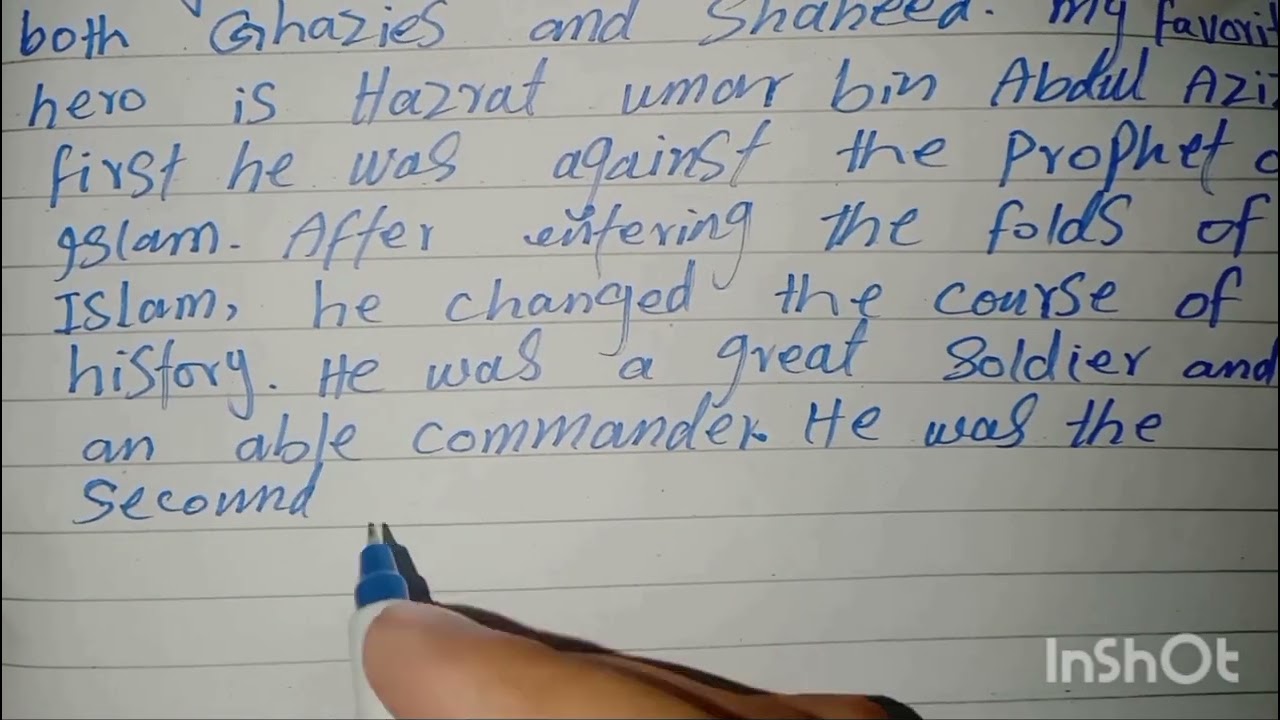 both Ghazies and Shaheed. My favorit
hero is Hazrat umar bin Abdul Azi
first he was against the Prophet o
Islam. After entering the folds of
Islam, he changed the course of
history. He was a great Soldier and
an able commander. He was the
Secound
InShOt